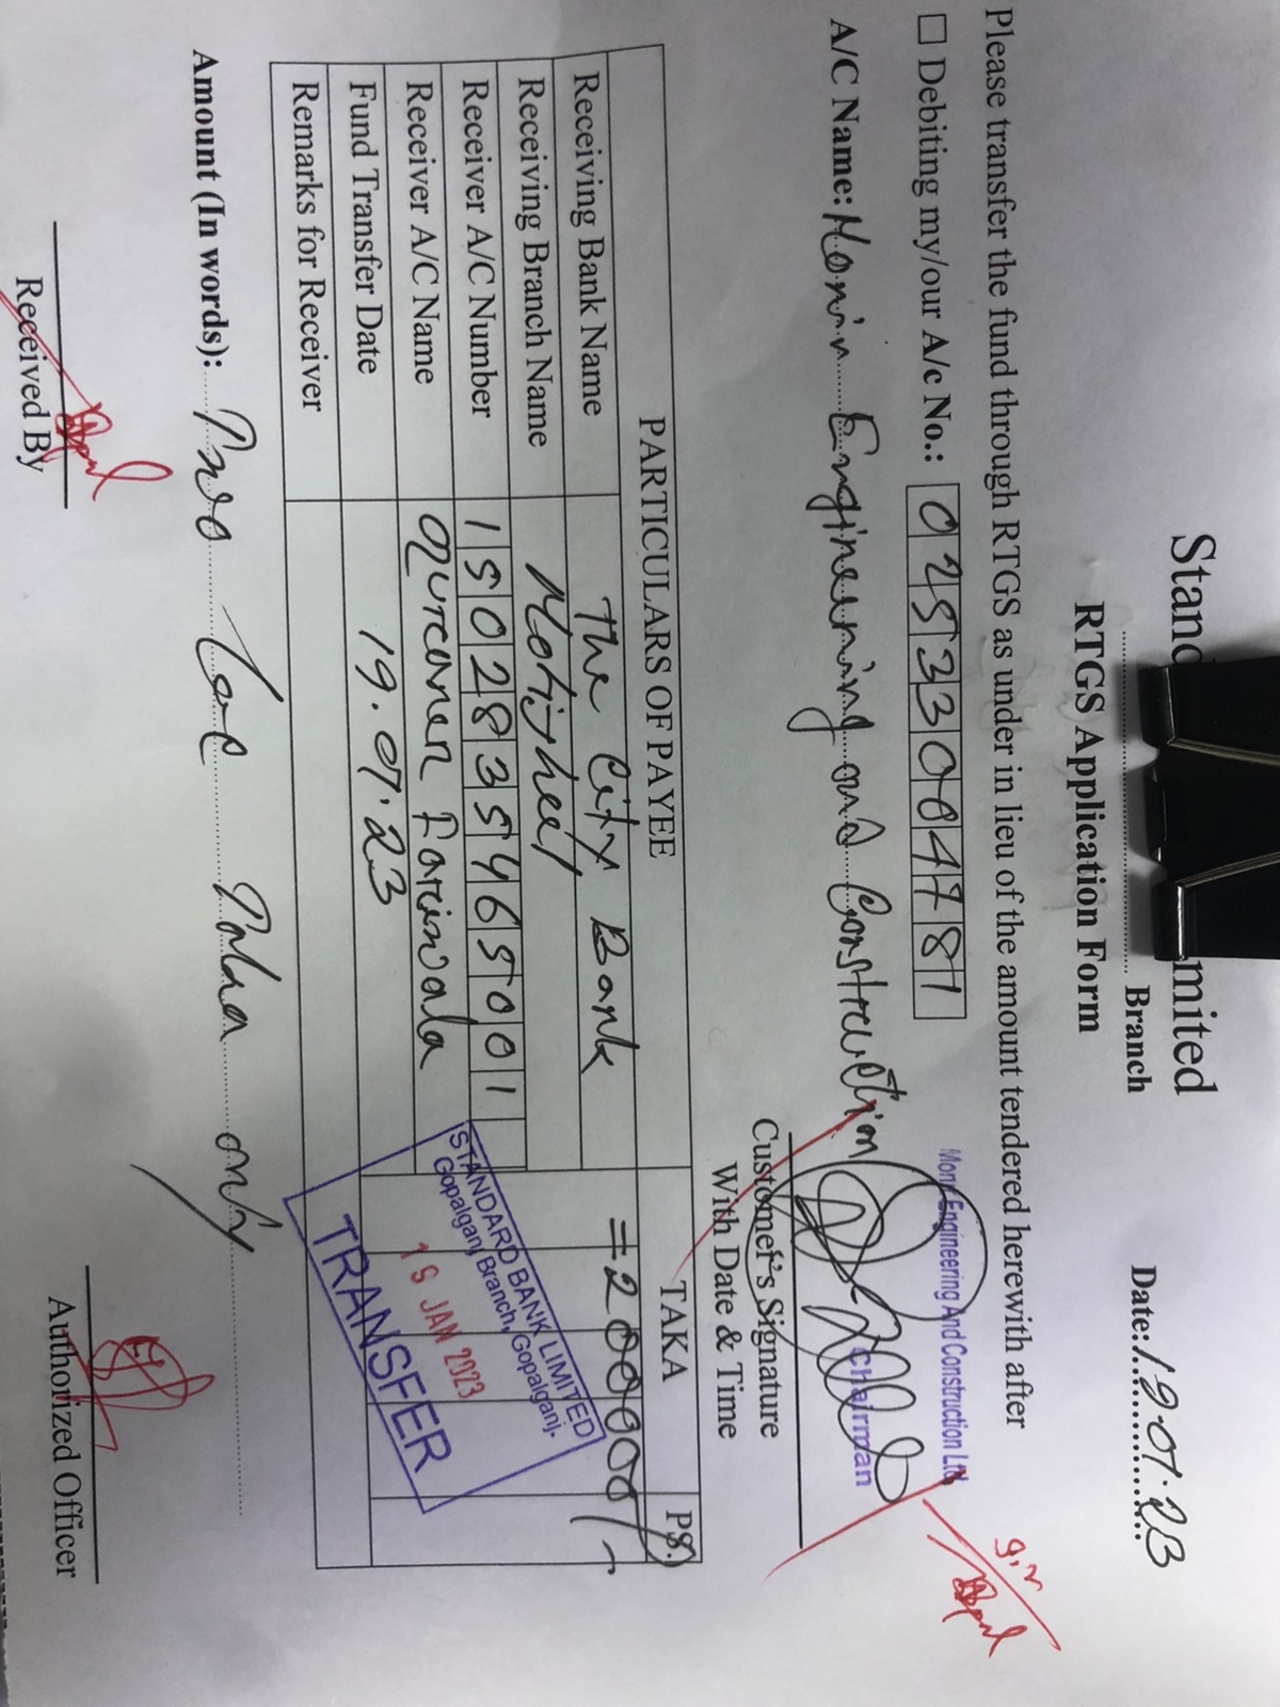 Stand mited
Branch
Date: 19.01.23
RTGS Application Form
Please transfer the fund through RTGS as under in lieu of the amount tendered herewith after
☐ Debiting my/our A/c No.: 02533004781
A/C Name: Monir Engineering and Construction
Engineering And Construction Ltd
Chairman
Customer's Signature
With Date & Time
PARTICULARS OF PAYEE TAKA PS.
Receiving Bank Name The City Bank =200000/-
Receiving Branch Name Motijheel
Receiver A/C Number 1502835465001
Receiver A/C Name
Fund Transfer Date 19.01.23
Remarks for Receiver
STANDARD BANK LIMITED
Gopalganj Branch, Gopalganj.
19 JAN 2023
TRANSFER
Amount (In words): Two Lac Taka only
Received By
Authorized Officer